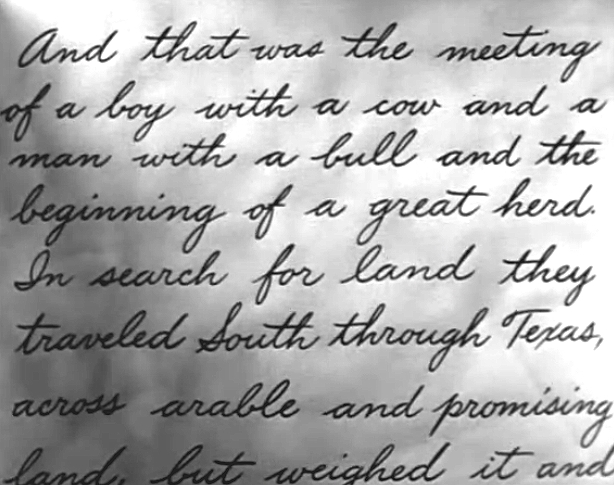 And that was the meeting
of a boy with a cow and a
man with a bull and the
beginning of a great herd.
In search for land they
traveled South through Texas,
across arable and promising
land, but weighed it and